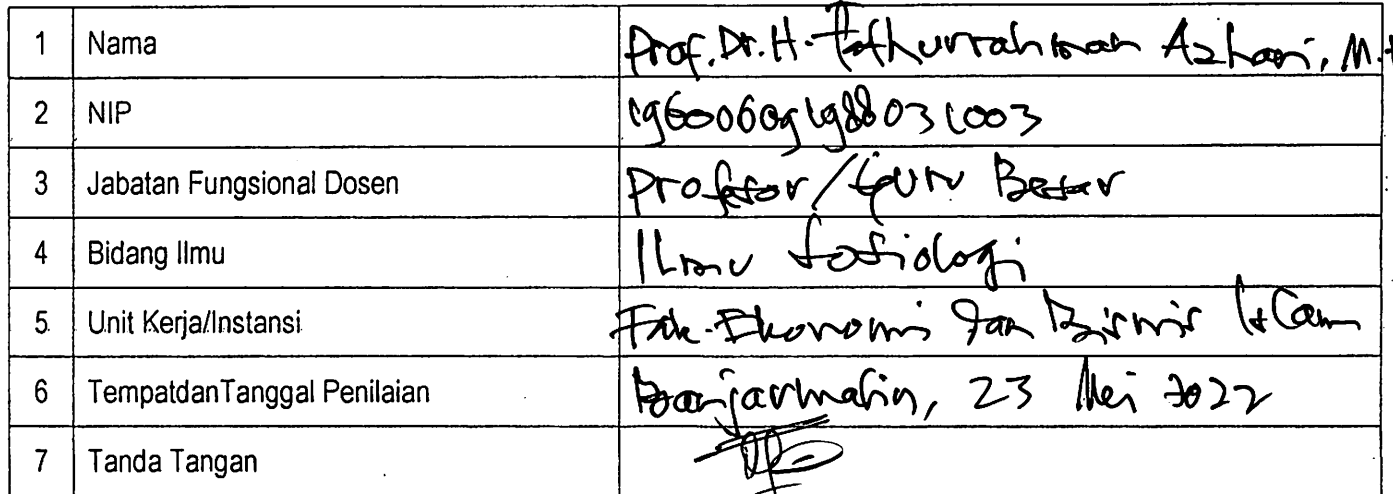 1 Nama Prof. Dr. H. Fathurrahman Azhari, M.
2 NIP 196006091988031003
3 Jabatan Fungsional Dosen Profesor/Guru Besar
4 Bidang Ilmu Ilmu Sosiologi
5 Unit Kerja/Instansi Fak. Ekonomi dan Bisnis Islam
6 TempatdanTanggal Penilaian Banjarmasin, 23 Mei 2022
7 Tanda Tangan